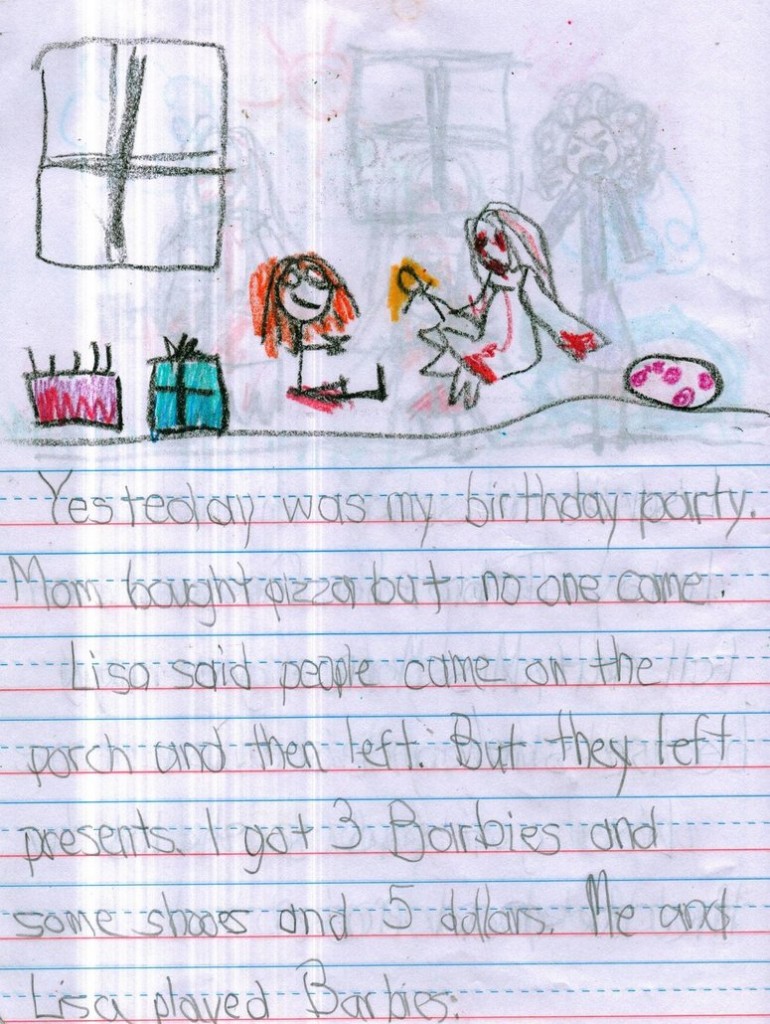 Yesteday was my birthday party.
Mom bought pizza but no one came.
Lisa said people came on the
porch and then left. But they left
presents. I got 3 Barbies and
some shooes and 5 dollars. Me and
Lisa played Barbies.